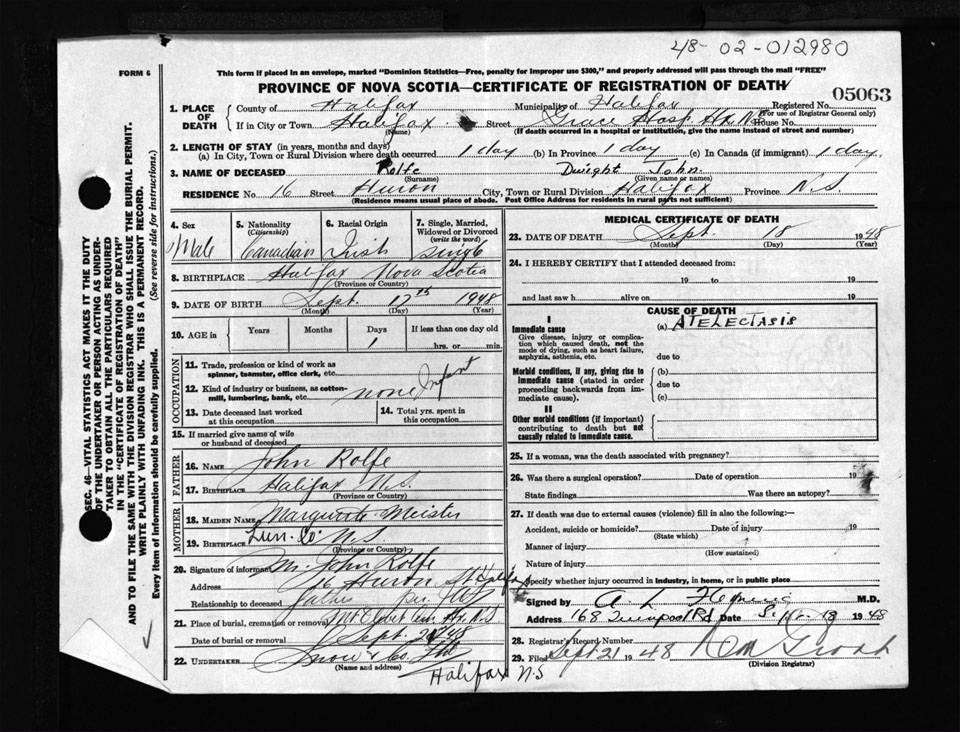 48-02-012980
FORM 6
This form if placed in an envelope, marked "Dominion Statistics—Free, penalty for improper use $300," and properly addressed will pass through the mail "FREE"
PROVINCE OF NOVA SCOTIA—CERTIFICATE OF REGISTRATION OF DEATH
05063
1. PLACE OF DEATH
County of Halifax Municipality of Halifax Registered No.
(For use of Registrar General only)
If in City or Town Halifax Street Grace Hosp. Hfx N.S. House No.
(Name) (If death occurred in a hospital or institution, give the name instead of street and number)
2. LENGTH OF STAY (in years, months and days)
(a) In City, Town or Rural Division where death occurred 1 day (b) In Province 1 day (c) In Canada (if immigrant) 1 day.
3. NAME OF DECEASED Rolfe Dwight John.
(Surname) (Given name or names)
RESIDENCE No. 16 Street Huron City, Town or Rural Division Halifax Province N.S.
(Residence means usual place of abode. Post Office Address for residents in rural parts not sufficient)
4. Sex
Male
5. Nationality
(Citizenship)
Canadian
6. Racial Origin
Irish
7. Single, Married, Widowed or Divorced
(write the word)
Single
8. BIRTHPLACE Halifax Nova Scotia
(Province or Country)
9. DATE OF BIRTH Sept. 17th 1948
(Month) (Day) (Year)
10. AGE in Years Months Days If less than one day old
1 hrs. or min.
OCCUPATION
11. Trade, profession or kind of work as spinner, teamster, office clerk, etc.
12. Kind of industry or business, as cotton-mill, lumbering, bank, etc.
none Infant
13. Date deceased last worked at this occupation
14. Total yrs. spent in this occupation
15. If married give name of wife or husband of deceased
FATHER
16. NAME John Rolfe
17. BIRTHPLACE Halifax N.S.
(Province or Country)
MOTHER
18. MAIDEN NAME Marguerite Meister
19. BIRTHPLACE Lun. Co N.S.
(Province or Country)
20. Signature of informant M. John Rolfe
Address 16 Huron St Halifax
Relationship to deceased father
21. Place of burial, cremation or removal
Date of burial or removal Sept. 20/48
22. UNDERTAKER Snow & Co.
(Name and address)
Halifax N.S
MEDICAL CERTIFICATE OF DEATH
23. DATE OF DEATH Sept. 18 1948
(Month) (Day) (Year)
24. I HEREBY CERTIFY that I attended deceased from:
19 to 19
and last saw h alive on 19
CAUSE OF DEATH
I
Immediate cause
Give disease, injury or complication which caused death, not the mode of dying, such as heart failure, asphyxia, asthenia, etc.
(a) ATELECTASIS
due to
Morbid conditions, if any, giving rise to immediate cause (stated in order proceeding backwards from immediate cause).
(b)
due to
(c)
II
Other morbid conditions (if important) contributing to death but not causally related to immediate cause.
25. If a woman, was the death associated with pregnancy?
26. Was there a surgical operation? Date of operation 19
State findings Was there an autopsy?
27. If death was due to external causes (violence) fill in also the following:—
Accident, suicide or homicide? Date of injury 19
(State which)
Manner of injury
(How sustained)
Nature of injury
Specify whether injury occurred in industry, in home, or in public place
Signed by A. L. M.D.
Address 168 Quinpool Rd. Date 1948
28. Registrar's Record Number
29. Filed Sept 21 1948
(Division Registrar)
SEC. 46—VITAL STATISTICS ACT MAKES IT THE DUTY
OF THE UNDERTAKER OR PERSON ACTING AS UNDER-
TAKER TO OBTAIN ALL THE PARTICULARS REQUIRED
IN THE "CERTIFICATE OF REGISTRATION OF DEATH"
AND TO FILE THE SAME WITH THE DIVISION REGISTRAR WHO SHALL ISSUE THE BURIAL PERMIT.
WRITE PLAINLY WITH UNFADING INK. THIS IS A PERMANENT RECORD.
Every item of information should be carefully supplied. (See reverse side for instructions.)